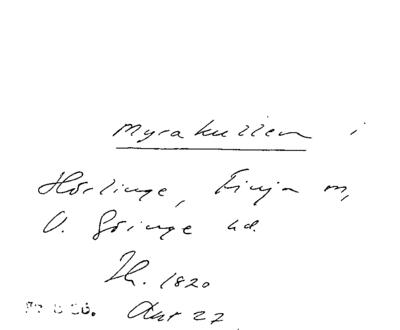 Myrakullen i
Hörlinge, Finja sn,
V. Göinge hd.
1820
Akt 27